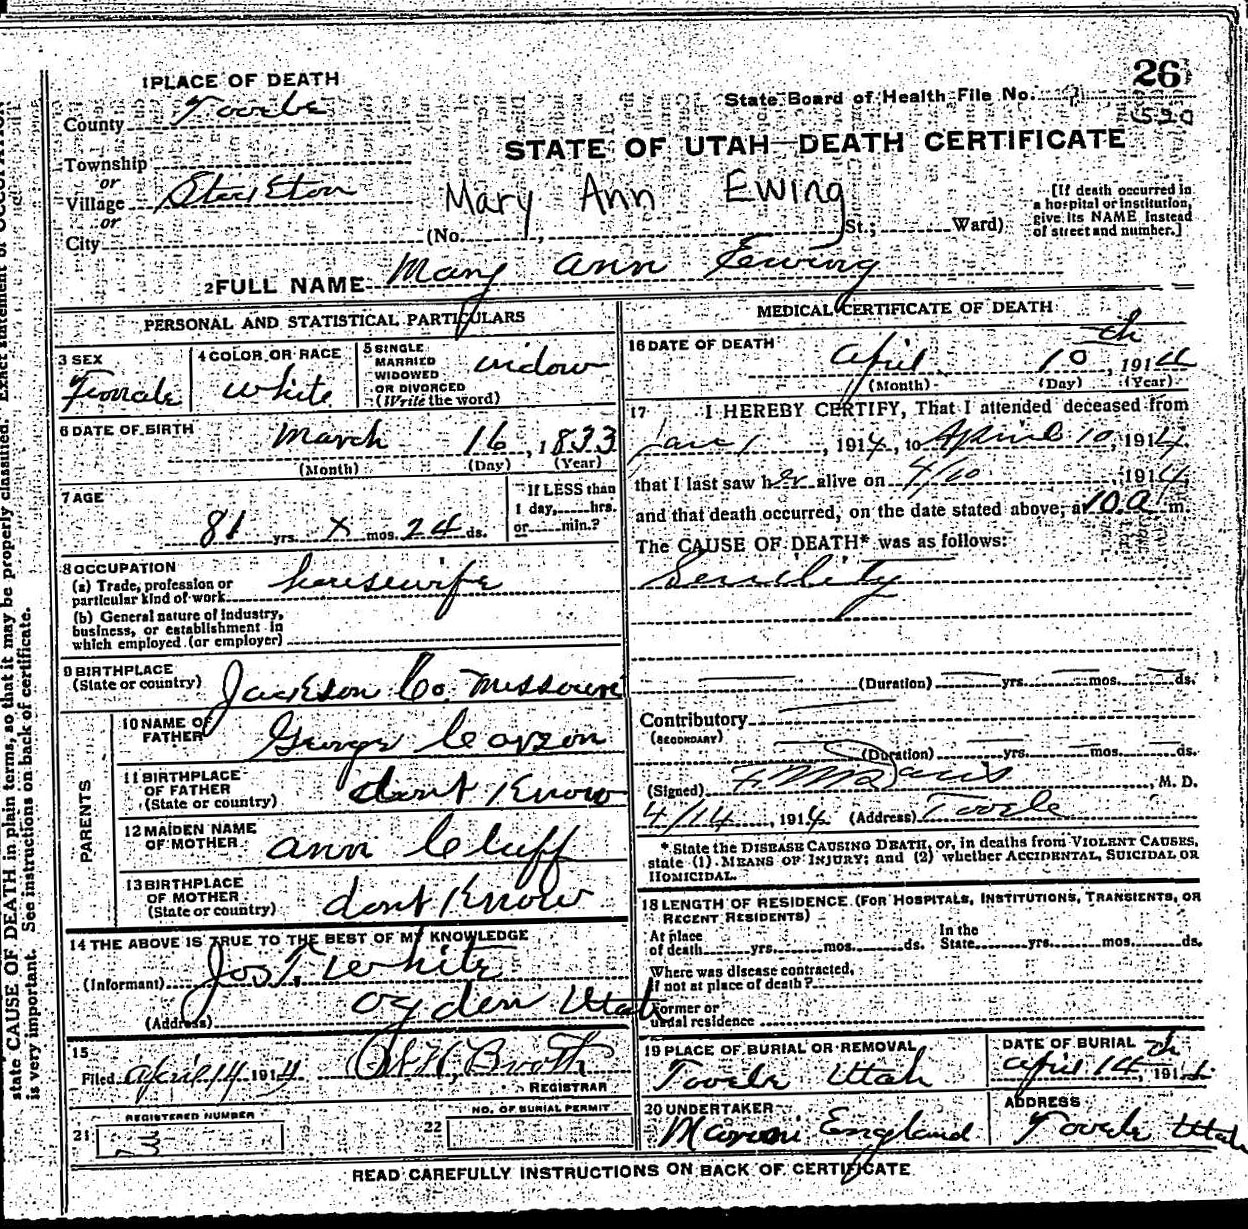 26
1 PLACE OF DEATH
State Board of Health File No.
530
County Tooele
STATE OF UTAH—DEATH CERTIFICATE
Township
or
Village Stockton
or
City
Mary Ann Ewing
(No. , St.; Ward)
[If death occurred in
a hospital or institution,
give its NAME instead
of street and number.]
2 FULL NAME Mary Ann Ewing
PERSONAL AND STATISTICAL PARTICULARS
3 SEX
Female
4 COLOR OR RACE
White
5 SINGLE
MARRIED
WIDOWED
OR DIVORCED
(Write the word)
widow
6 DATE OF BIRTH
March 16, 1833
(Month) (Day) (Year)
7 AGE
81 yrs. X mos. 24 ds.
If LESS than
1 day, hrs.
or min.?
8 OCCUPATION
(a) Trade, profession or
particular kind of work
housewife
(b) General nature of industry,
business, or establishment in
which employed (or employer)
9 BIRTHPLACE
(State or country)
Jackson Co. Missouri
PARENTS
10 NAME OF
FATHER
George
11 BIRTHPLACE
OF FATHER
(State or country)
dont Know
12 MAIDEN NAME
OF MOTHER
Ann Cluff
13 BIRTHPLACE
OF MOTHER
(State or country)
dont Know
14 THE ABOVE IS TRUE TO THE BEST OF MY KNOWLEDGE
(Informant) Jos T. White
(Address) Ogden Utah
15
Filed April 14 1914 Booth
REGISTRAR
REGISTERED NUMBER
21 3
NO. OF BURIAL PERMIT
22
MEDICAL CERTIFICATE OF DEATH
16 DATE OF DEATH
April 10th, 1914
(Month) (Day) (Year)
17 I HEREBY CERTIFY, That I attended deceased from
Jan 1, 1914, to April 10, 1914,
that I last saw her alive on 4/10, 1914,
and that death occurred, on the date stated above, at 10 a m.
The CAUSE OF DEATH* was as follows:
Senility
(Duration) yrs. mos. ds.
Contributory
(SECONDARY)
(Duration) yrs. mos. ds.
(Signed) F M Davis, M. D.
4/14, 1914 (Address) Tooele
* State the DISEASE CAUSING DEATH, or, in deaths from VIOLENT CAUSES,
state (1) MEANS OF INJURY; and (2) whether ACCIDENTAL, SUICIDAL OR
HOMICIDAL.
18 LENGTH OF RESIDENCE (FOR HOSPITALS, INSTITUTIONS, TRANSIENTS, OR
RECENT RESIDENTS)
At place
of death yrs. mos. ds.
In the
State yrs. mos. ds.
Where was disease contracted,
if not at place of death?
Former or
usual residence
19 PLACE OF BURIAL OR REMOVAL
Tooele Utah
DATE OF BURIAL
April 14th, 191
20 UNDERTAKER
Maroni England
ADDRESS
Tooele Utah
READ CAREFULLY INSTRUCTIONS ON BACK OF CERTIFICATE
state CAUSE OF DEATH in plain terms, so that it may be properly classified. Exact statement of OCCUPATION
is very important. See instructions on back of certificate.